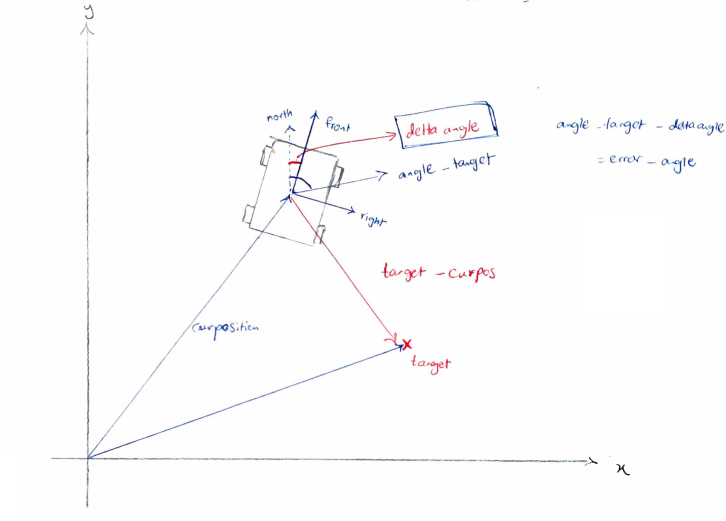 y
north
front
delta angle
angle_target - delta angle
= error - angle
angle - target
right
target - curpos
curposition
target
x